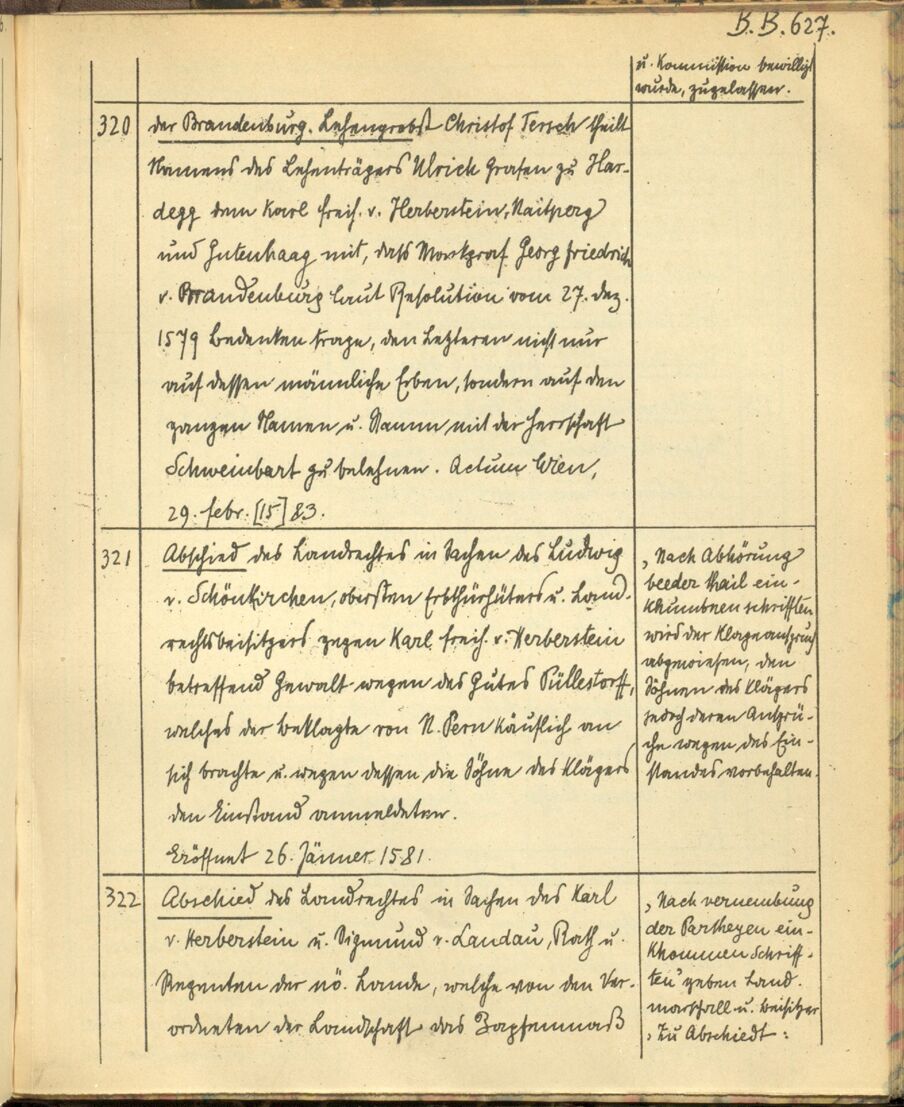 B.B. 627.
u. Kommission bewilligt
wurde, zugelassen.
320
der Brandenburg. Lehenprobst Christof Tersch theilt
Namens des Lehenträgers Ulrich Grafen zu Har-
degg dem Karl Freih. v. Herberstein, Naitperg
und Gutenhaag mit, dass Markgraf Georg Friedrich
v. Brandenburg laut Resolution vom 27. Dez.
1579 Bedenken trage, den Letzteren nicht nur
auf dessen männliche Erben, sondern auf den
ganzen Namen u. Stamm mit der Herrschaft
Schweinbart zu belehnen. Actum Wien,
29. Febr. [15]83.
321
Abschied des Landrechtes in Sachen des Ludwig
v. Schönkirchen, obersten Erbthürhüters u. Land-
rechtsbeisitzers gegen Karl Freih. v. Herberstein
betreffend Gewalt wegen des Gutes Püllestorff,
welches der Beklagte von N. Pern käuflich an
sich brachte u. wegen dessen die Söhne des Klägers
den Einstand anmeldeten.
Eröffnet 26. Jänner 1581.
„Nach Abhörung
beeder thail ein-
khumbnen schrifften
wird der Klageanspruch
abgewiesen, den
Söhnen des Klägers
jedoch deren Ansprü-
che wegen des Ein-
standes vorbehalten.
322
Abschied des Landrechtes in Sachen des Karl
v. Herberstein u. Sigmund v. Landau, Rath u.
Regenten der nö. Lande, welche von den Ver-
ordneten der Landschaft das Zapfenmaß
„Nach vernembung
der Partheyen ein-
khommen Schriff-
ten" geben Land-
marschall u. Beisitzer
„zu Abschiedt: